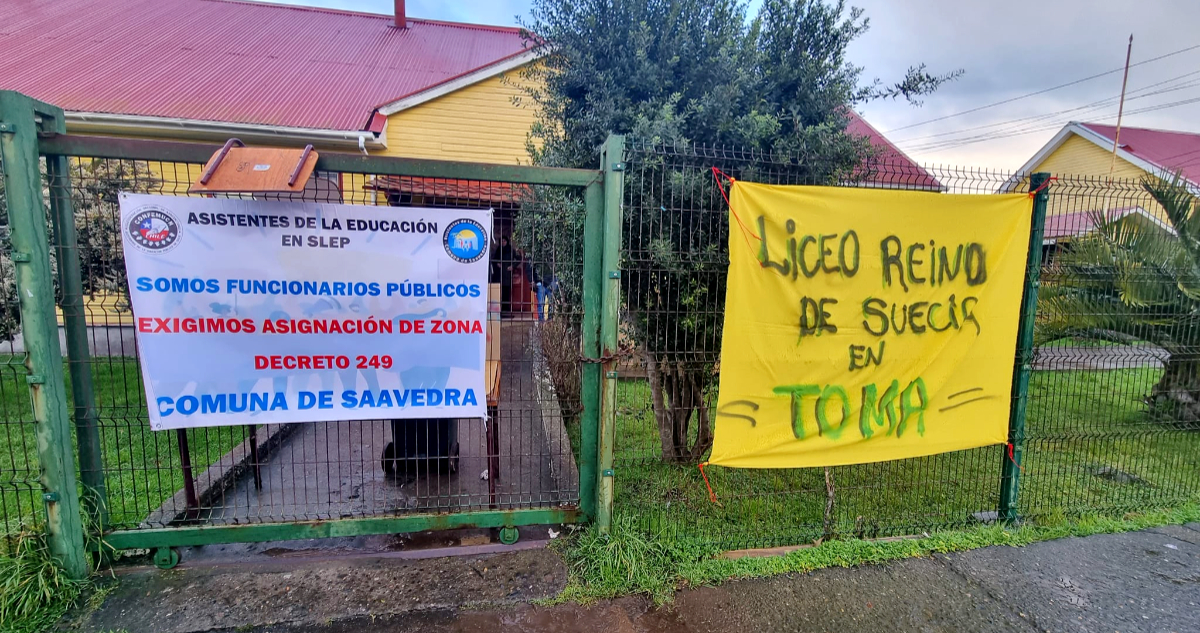 ASISTENTES DE LA EDUCACIÓN
EN SLEP
CONFEMUCH
CHILE
SOMOS FUNCIONARIOS PÚBLICOS
EXIGIMOS ASIGNACIÓN DE ZONA
DECRETO 249
COMUNA DE SAAVEDRA
LICEO REINO
DE SUECIA
EN
TOMA